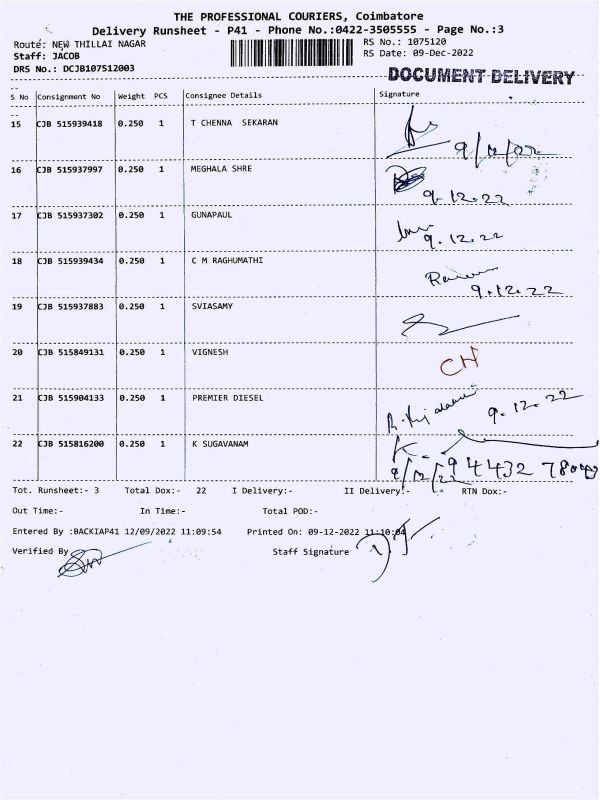 THE PROFESSIONAL COURIERS, Coimbatore
Delivery Runsheet - P41 - Phone No.:0422-3505555 - Page No.:3
Route: NEW THILLAI NAGAR RS No.: 1075120
Staff: JACOB RS Date: 09-Dec-2022
DRS No.: DCJB107512003
DOCUMENT DELIVERY
S No Consignment No Weight PCS Consignee Details Signature
15 CJB 515939418 0.250 1 T CHENNA SEKARAN 9/12/22
16 CJB 515937997 0.250 1 MEGHALA SHRE 9.12.22
17 CJB 515937302 0.250 1 GUNAPAUL 9.12.22
18 CJB 515939434 0.250 1 C M RAGHUMATHI 9.12.22
19 CJB 515937883 0.250 1 SVIASAMY
20 CJB 515849131 0.250 1 VIGNESH CH
21 CJB 515904133 0.250 1 PREMIER DIESEL 9.12.22
22 CJB 515816200 0.250 1 K SUGAVANAM K.
9/12/22
Tot. Runsheet:- 3 Total Dox:- 22 I Delivery:- II Delivery:- RTN Dox:-
Out Time:- In Time:- Total POD:-
Entered By :BACKIAP41 12/09/2022 11:09:54 Printed On: 09-12-2022 11:10:04
Verified By Staff Signature